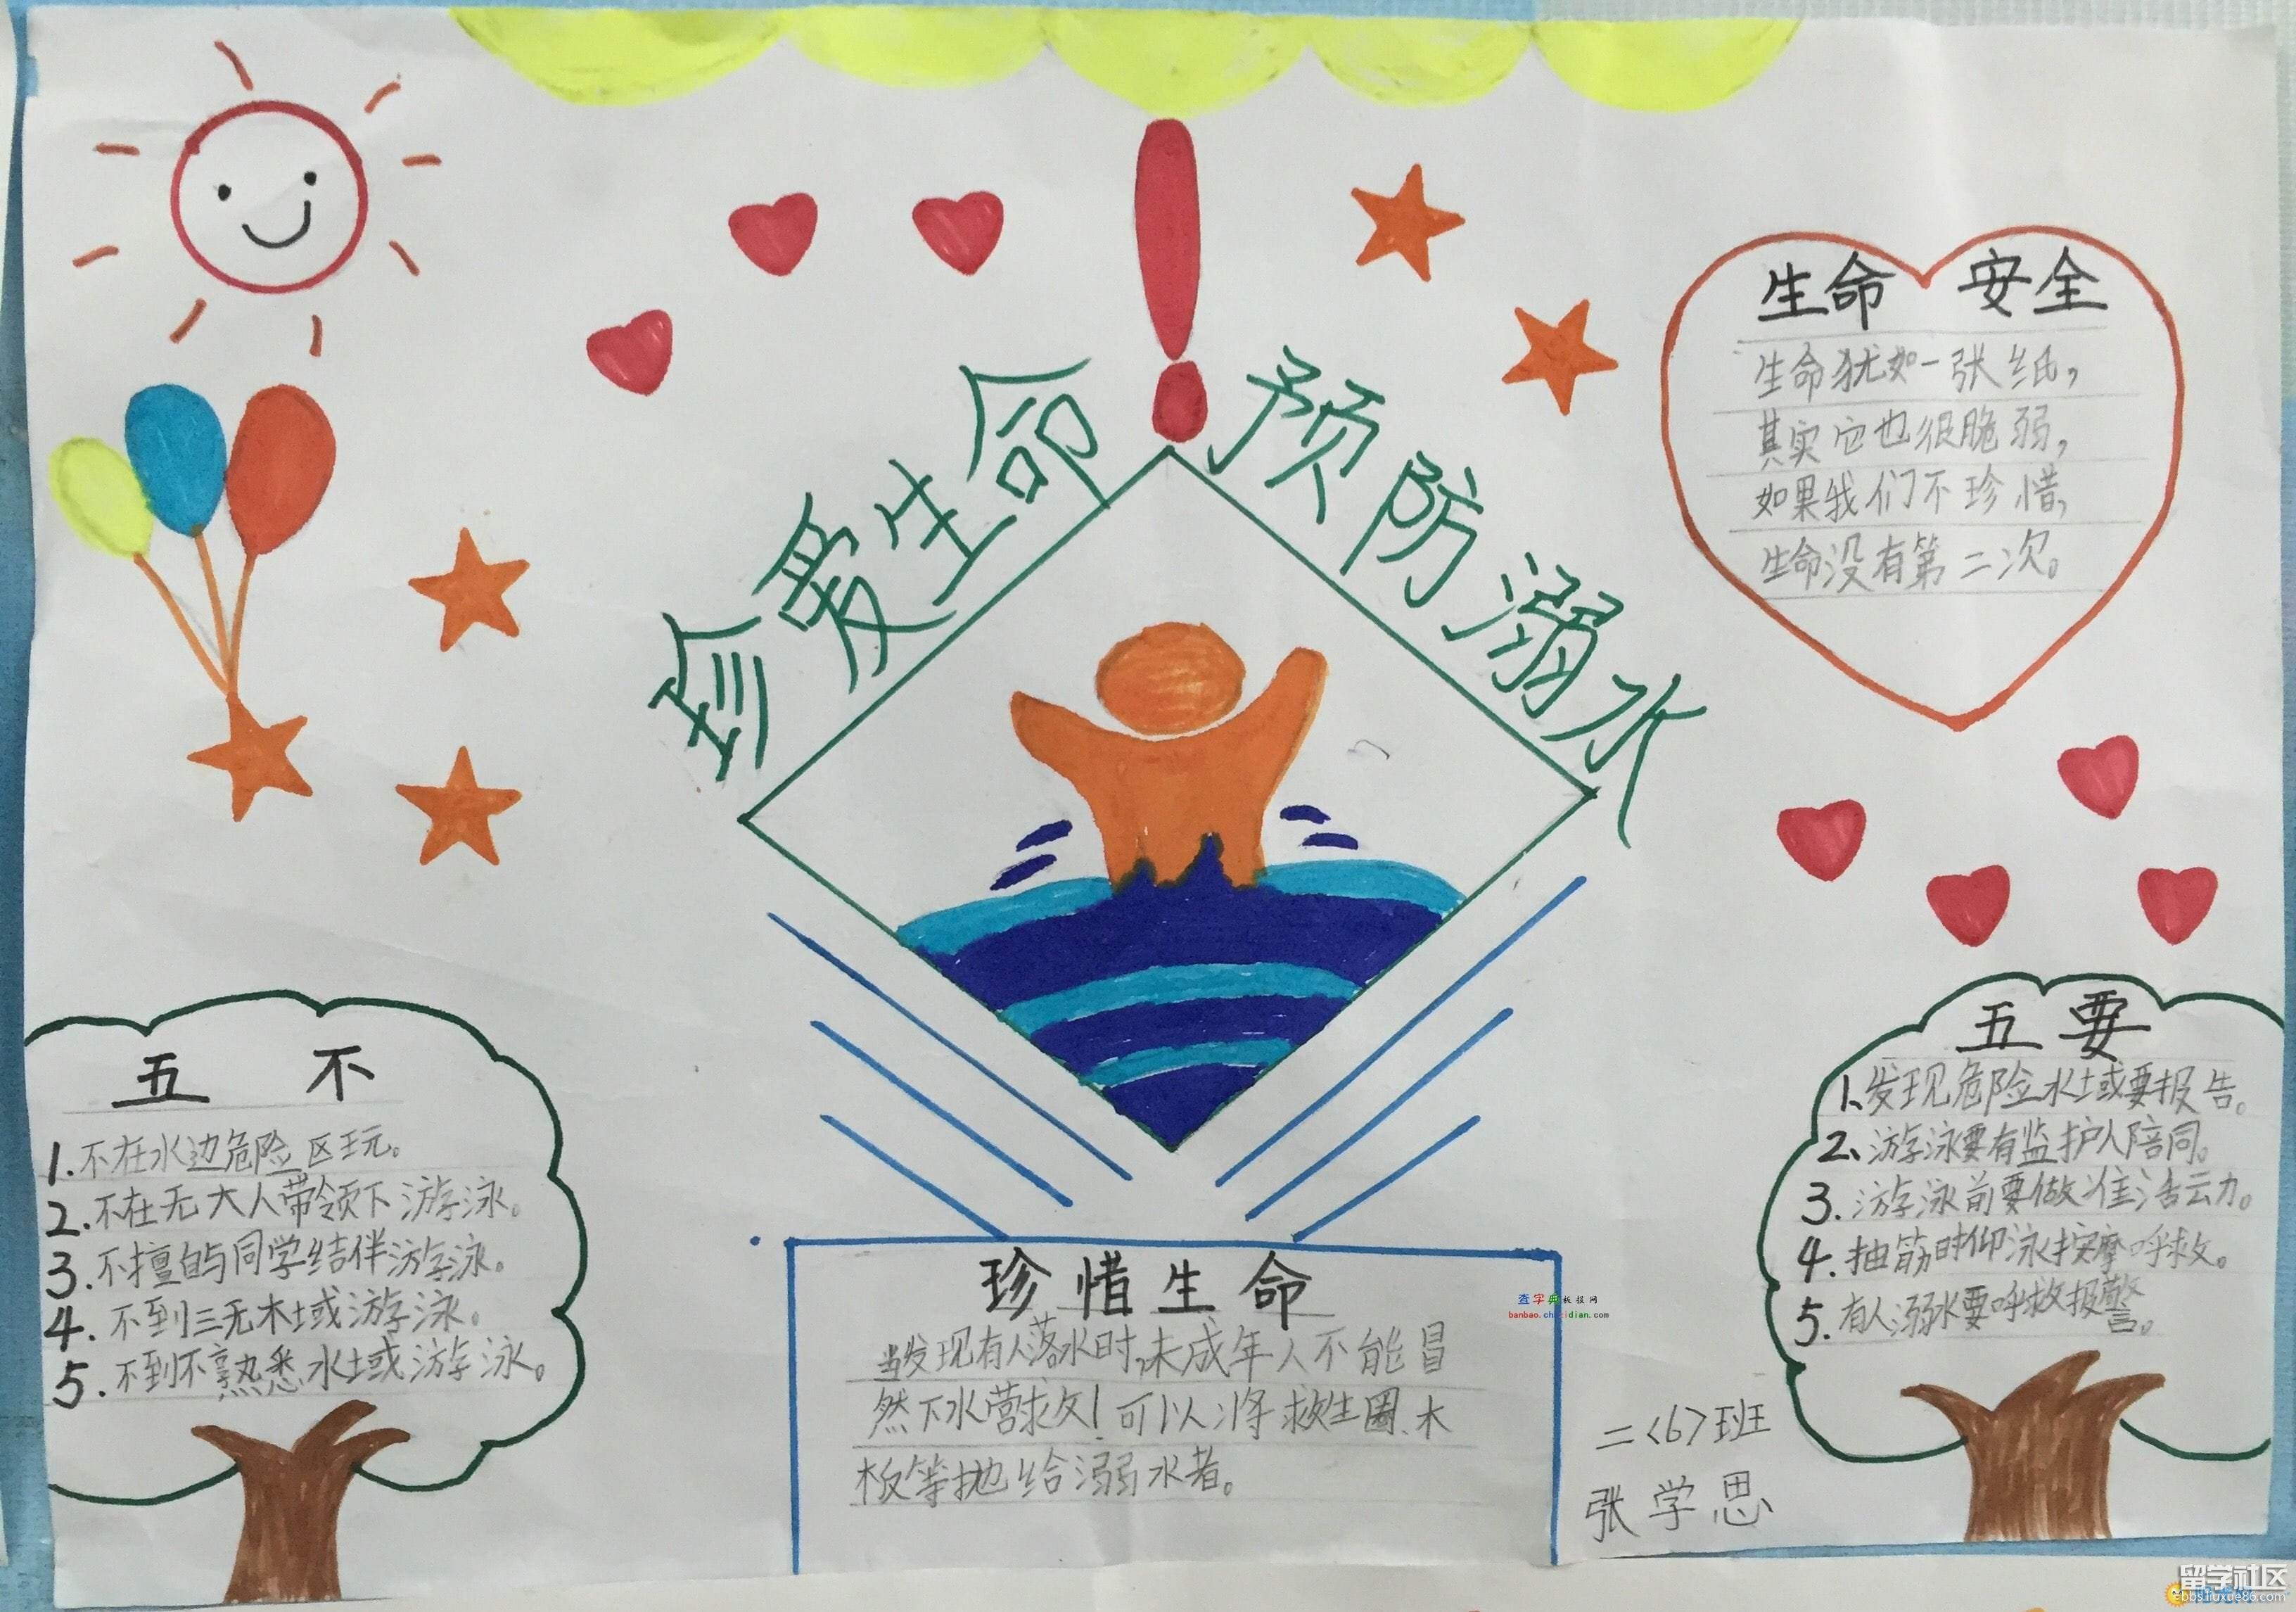 珍爱生命
预防溺水
生命 安全
生命犹如一张纸，
其实它也很脆弱，
如果我们不珍惜，
生命没有第二次。
五不
1.不在水边危险区玩。
2.不在无大人带领下游泳。
3.不擅自与同学结伴游泳。
4.不到三无木域或游泳。
5.不到不熟悉水域或游泳。
五要
1、发现危险水域要报告。
2、游泳要有监护人陪同。
3.游泳前要做准活动。
4.抽筋时仰泳按摩呼救。
5.有人溺水要呼救报警。
珍惜生命
当发现有人落水时，未成年人不能冒
然下水营救！可以将救生圈、木
板等抛给溺水者。
二〈6〉班
张学思
查字典板报网
banbao.chazidian.com
留学社区
bbs.liuxue86.com